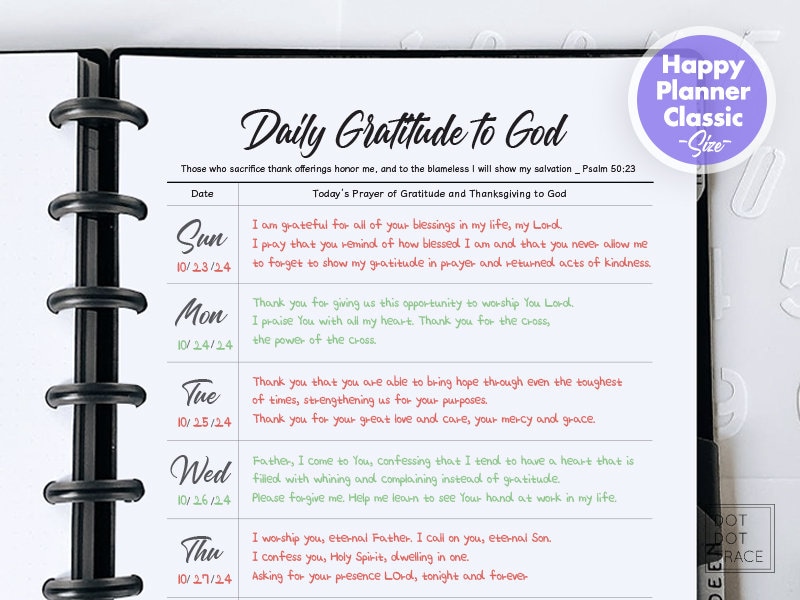 Happy
Planner
Classic
-Size-
Daily Gratitude to God
Those who sacrifice thank offerings honor me, and to the blameless I will show my salvation _ Psalm 50:23
Date Today's Prayer of Gratitude and Thanksgiving to God
Sun
10/23/24
I am grateful for all of your blessings in my life, my Lord.
I pray that you remind of how blessed I am and that you never allow me
to forget to show my gratitude in prayer and returned acts of kindness.
Mon
10/24/24
Thank you for giving us this opportunity to worship You Lord.
I praise You with all my heart. Thank you for the cross,
the power of the cross.
Tue
10/25/24
Thank you that you are able to bring hope through even the toughest
of times, strengthening us for your purposes.
Thank you for your great love and care, your mercy and grace.
Wed
10/26/24
Father, I come to You, confessing that I tend to have a heart that is
filled with whining and complaining instead of gratitude.
Please forgive me. Help me learn to see Your hand at work in my life.
Thu
10/27/24
I worship you, eternal Father. I call on you, eternal Son.
I confess you, Holy Spirit, dwelling in one.
Asking for your presence LOrd, tonight and forever
DOT
DOT
GRACE